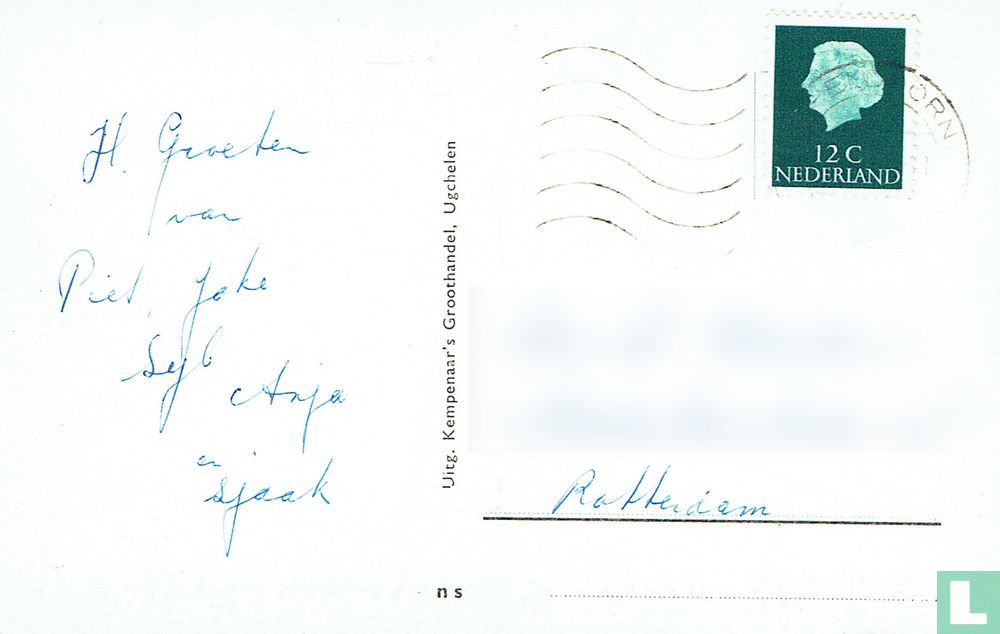 H. Groeten
van
Piet, Joke
Syb
Anja
en
Sjaak
Uitg. Kempenaar's Groothandel, Ugchelen
12 C
NEDERLAND
Rotterdam
n s
L